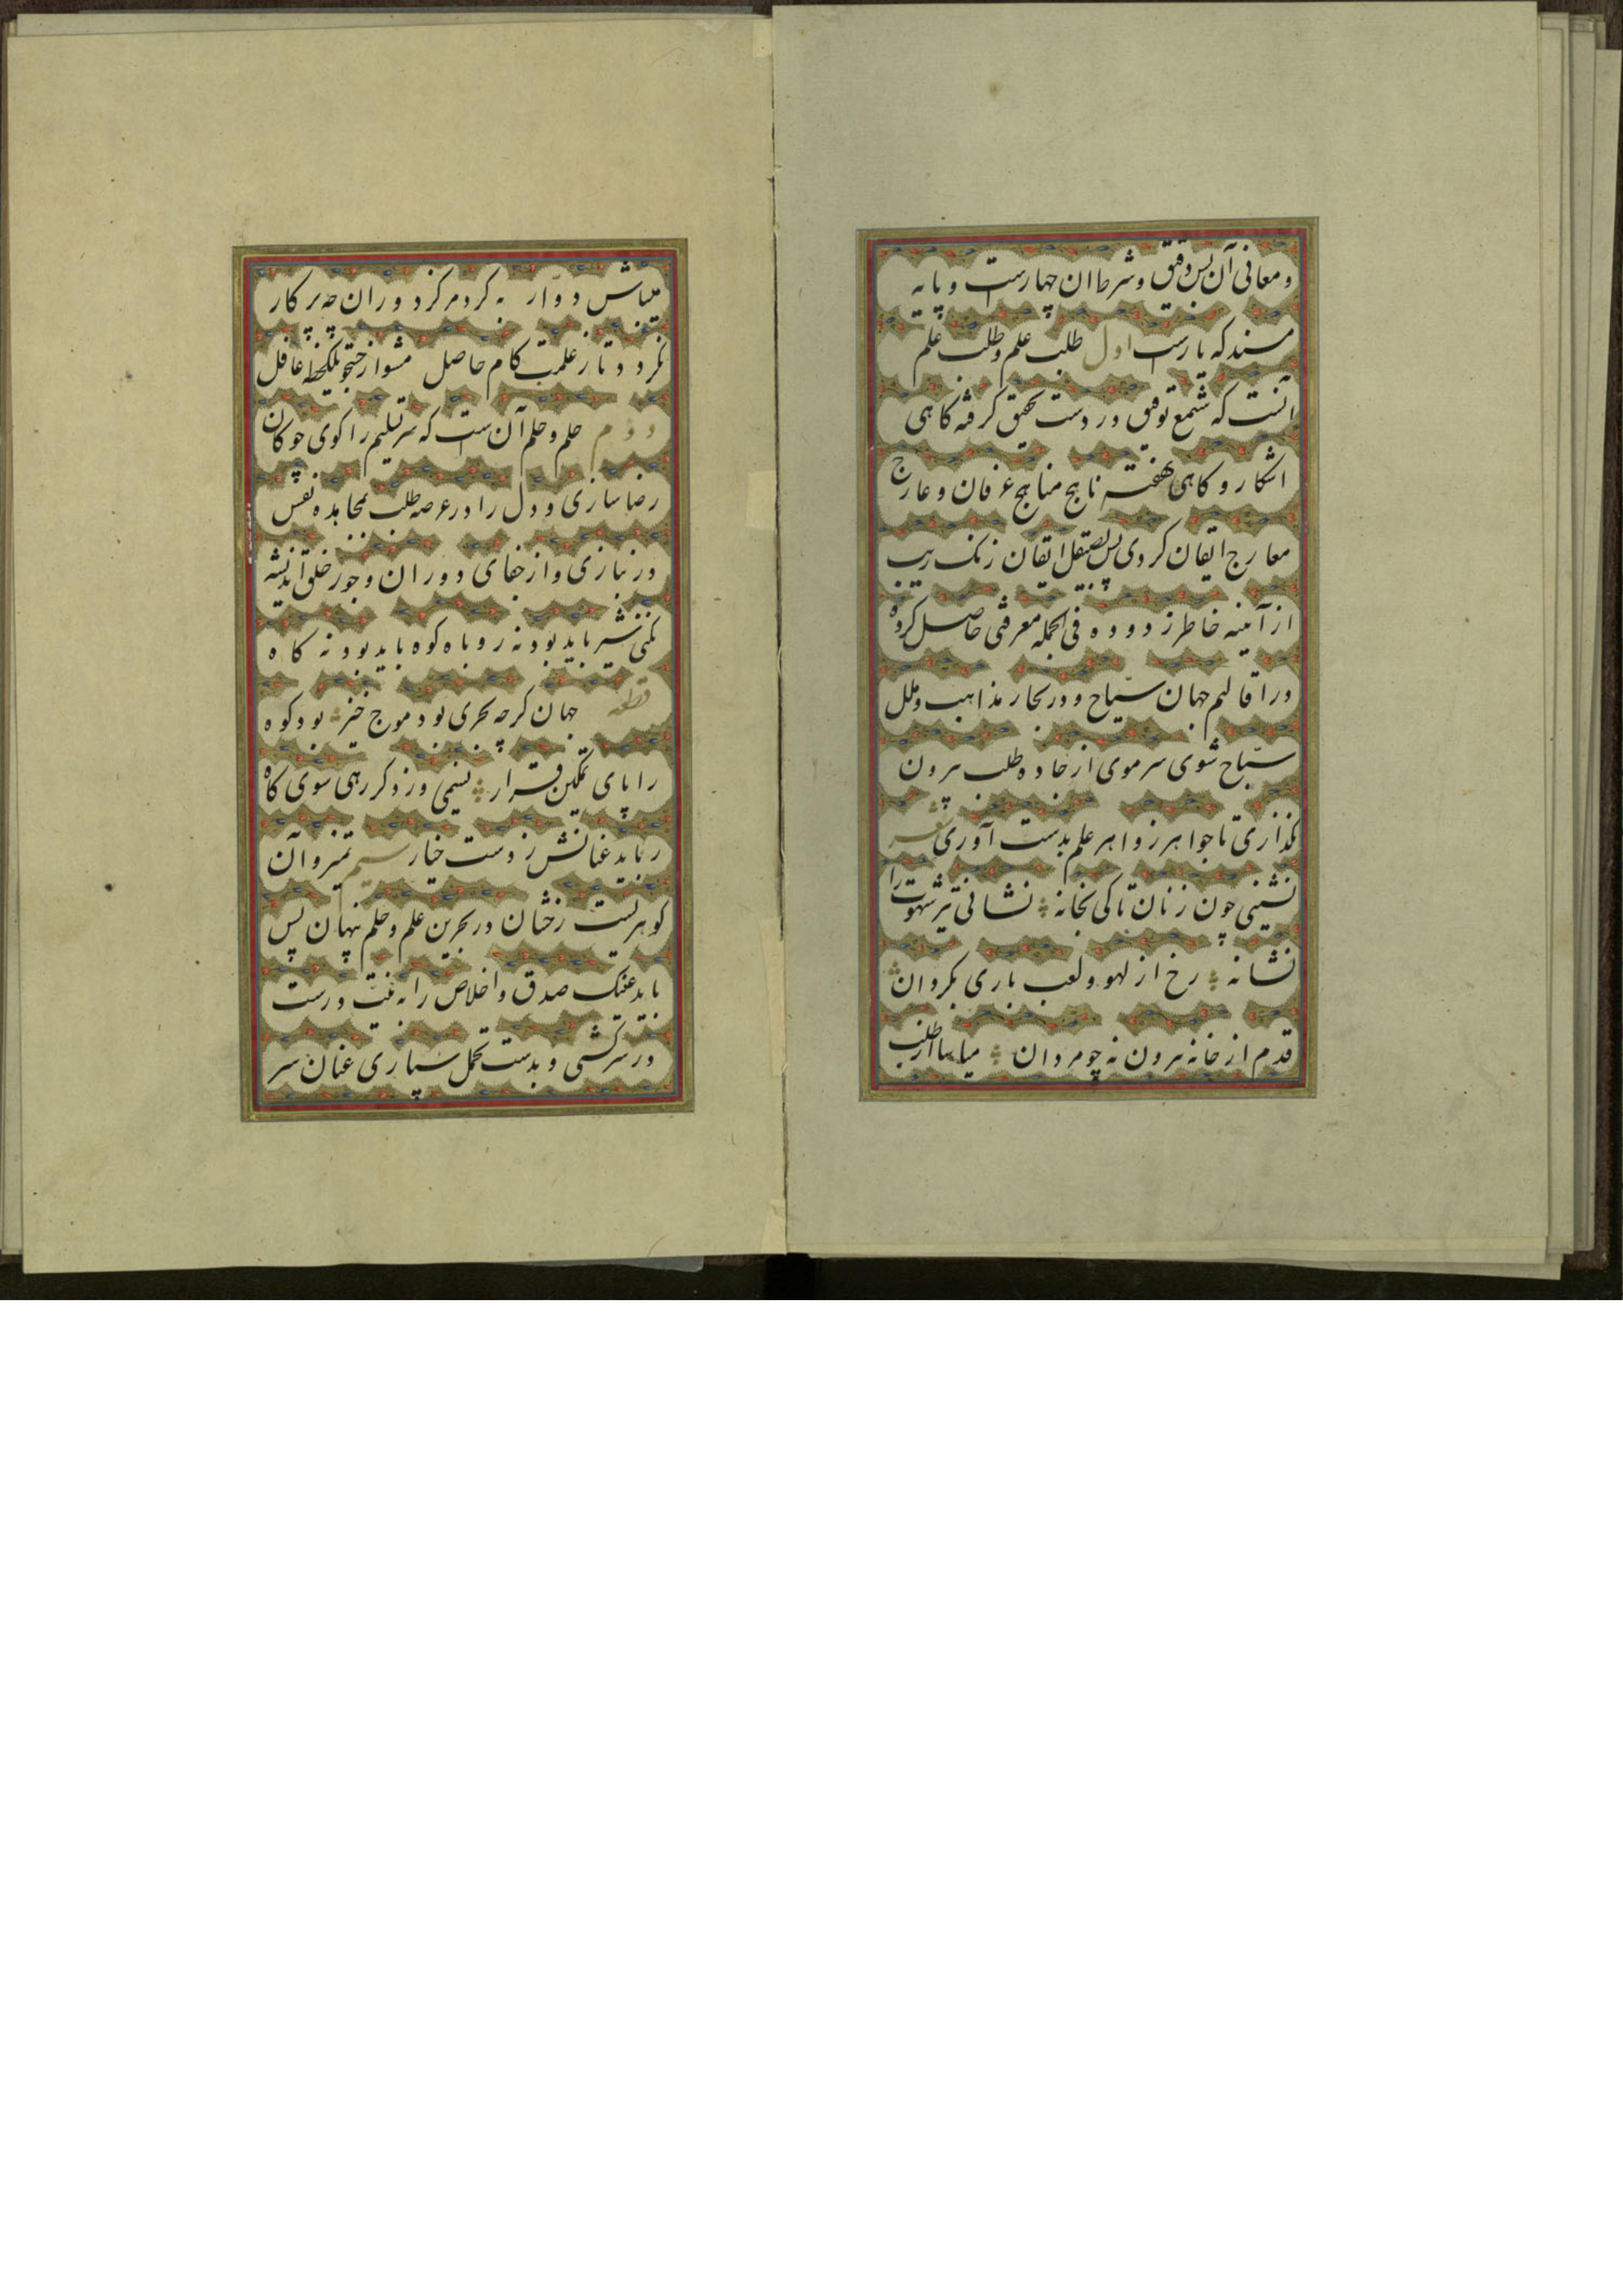 و معانی آن بس دقیق و شرط آن چهارست و پایه
مسند که بارست اول طلب علم و طلب علم
آنست که شمع توفیق در دست تحقیق گرفته کاهی
اشکار و کاهی نهفته ناهج مناهج عرفان و عارج
معارج ایقان کردی پس بصیقل اتقان زنک ریب
از آینه خاطر زدوده فی الجمله معرفتی حاصل کرده
در اقالیم جهان سیّاح و در بحار مذاهب و ملل
سبّاح شوی سر موی از جاده طلب برون
نکذاری تا جواهر زواهر علم بدست آوری
نشینی چون زنان تا کی بخانه نشانی تیر شهوت را
نشانه رخ از لهو و لعب باری بکردان
قدم از خانه برون نه چو مردان میاسا از طلب
میباش دوّار به کرد مرکز دوران چه پرکار
نکردد تا ز علمت کام حاصل مشو از جستجو یکلحظه غافل
دوم حلم و حلم آن ست که سر تسلیم را کوی چوکان
رضا سازی و دل را در عرصه طلب بمجاهده نفس
در بازی و از جفای دوران و جور خلق اندیشه
نکنی شیر باید بود نه روباه کوه باید بود نه کاه
قطعه جهان کرچه بحری بود موج خیز بود کوه
را پای تمکین قرار نسیمی وزد کر رهی سوی کاه
رباید عنانش ز دست خیار سیم تمیز و آن
کوهریست رخشان در بحرین علم و حلم پنهان پس
باید عینک صدق و اخلاص را به نیّت درست
در سر کشی و بدست تحمل سپاری عنان سر